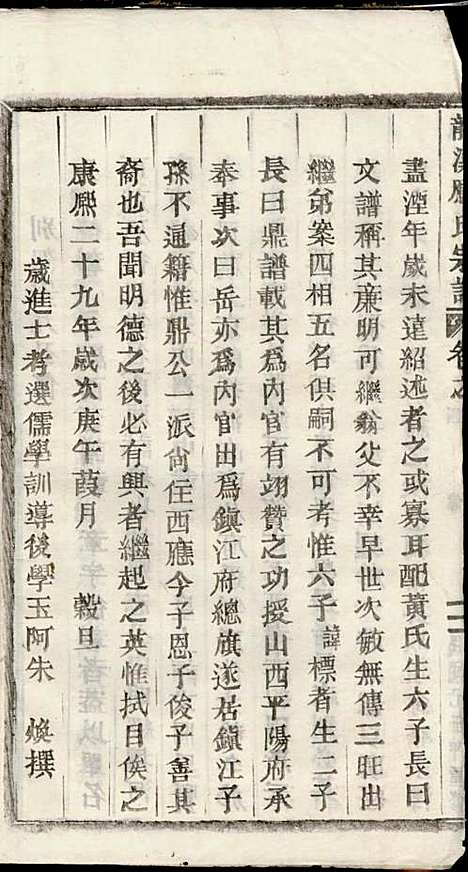 龍溪應氏宗譜 卷之
盡湮年歲未遠紹述者之或寡耳配黃氏生六子長曰
文譜稱其廉明可繼翁父不幸早世次敏無傳三旺出
繼弟案四相五名俱嗣不可考惟六子諱標者生二子
長曰鼎譜載其為內官有翊贊之功授山西平陽府承
奉事次曰岳亦為內官出為鎮江府總旗遂居鎮江子
孫不通籍惟鼎公一派尙在西應今子恩子俊子善其
裔也吾聞明德之後必有興者繼起之英惟拭目俟之
康熙二十九年歲次庚午葭月 穀旦
歲進士考選儒學訓導後學玉阿朱 煥撰